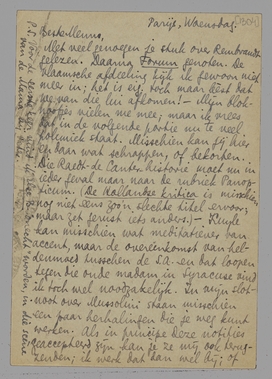 Parijs, Woensdag.
Beste Menno,
Met veel genoegen je stuk over Rembrandt
gelezen. Daarna Forum genoten. De
Vlaamsche afdeeling kijk ik gewoon niet
meer in; het is erg, toch maar best dat
we van die lui afkomen! - Mijn blok-
notjes vielen me mee; maar ik vrees
dat in de volgende portie nu te veel
polemiek staat. Misschien kan jij hier
en daar wat schrappen, of bekorten.
Die Raedt-de Canter historie moet nu in
ieder geval maar naar de rubriek Panop-
ticum. (De Hollandse Critica is misschien
nog niet een zoo'n slechte titel ervoor,
maar zet gerust iets anders.) - Kuyle
kan misschien wat meditatiever van
accent, maar de overeenkomst van hel-
denmoed tusschen de S.A. en dat loopen
tegen die oude madam in Syracuse vind
ik toch wel noodzakelijk. In mijn slot-
noot over Mussolini staan misschien
een paar herhalingen die je weg kunt
werken. Als in principe deze notities
geaccepteerd zijn kan je ze mij ook terug-
zenden; ik werk dan kan wel bij; of